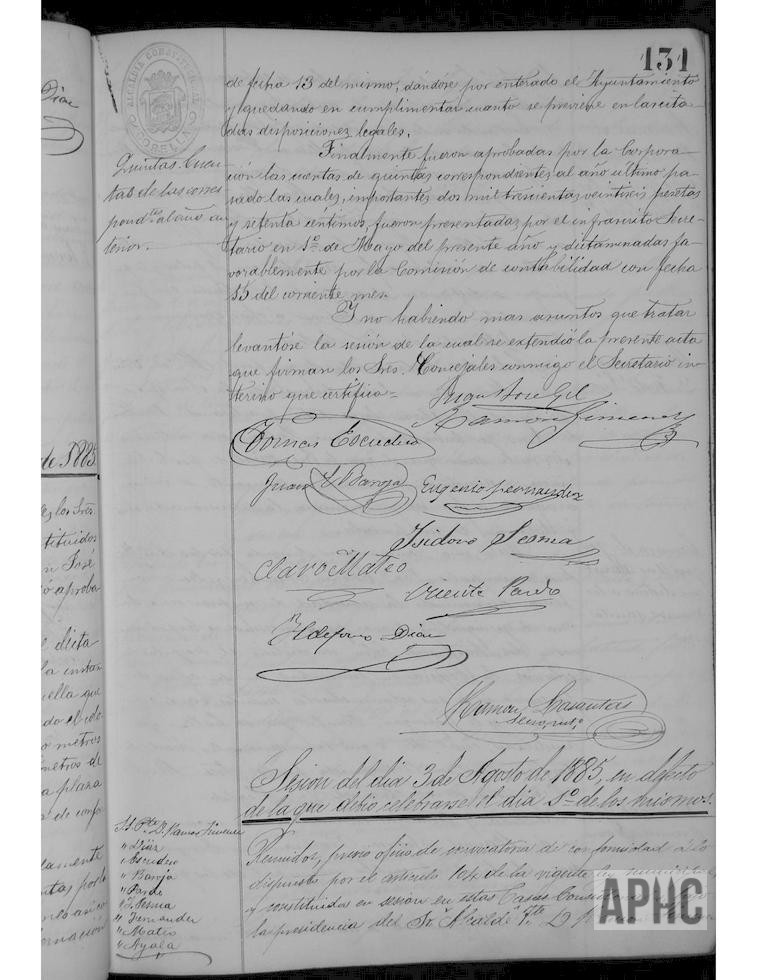 131
ALCALDIA CONSTITUCIONAL
CORELLA
de fecha 13 del mismo, dandose por enterado el Ayuntamiento
y quedando en cumplimentar cuanto se previene en las cita-
das disposiciones legales.
Quintas. Cuen-
tas de las corres
pond.tes al año an
terior.
Finalmente fueron aprobadas por la Corpora-
ción las cuentas de quintas correspondientes al año último pa-
sado las cuales, importantes dos mil trescientas veintiseis pesetas
y setenta céntimos, fueron presentadas por el infrascrito Secre-
tario en 1º de Mayo del presente año y dictaminadas fa-
vorablemente por la Comisión de contabilidad con fecha
15 del corriente mes.
Y no habiendo mas asuntos que tratar
levantóse la sesión de la cual se extendió la presente acta
que firman los Sres. Concejales conmigo el Secretario in-
terino que certifico=
Juan José Gil
Ramon Jimenez
Tomas Escudero
Juan Baroja
Eugenio Fernandez
Isidoro Sesma
Claro Mateo
Vicente Pardo
Yldefonso Diaz
Ramon Lasantas
Secret.º
Sesion del dia 3 de Agosto de 1885, en defecto
de la que debio celebrarse el dia 1º de los mismos.
S.S. Pte. D. Ramon Jimenez
" Diaz
" Escudero
" Baroja
" Pardo
" I. Sesma
" Fernandez
" Mateo
" Ayala
Reunidos, previo oficio de convocatoria de conformidad á lo
dispuesto por el articulo 104 de la vigente ley municipal
y constituidos en sesión en estas Casas Consistoriales bajo
la presidencia del Sr. Alcalde Pte. D.
Diaz
de 1885
los Sres.
tituidos
n José
ó aproba
dicta
la instan
ella que
do el
o metros
metros de
a plaza
de confor
lamente
tas por la
rnación
APHC